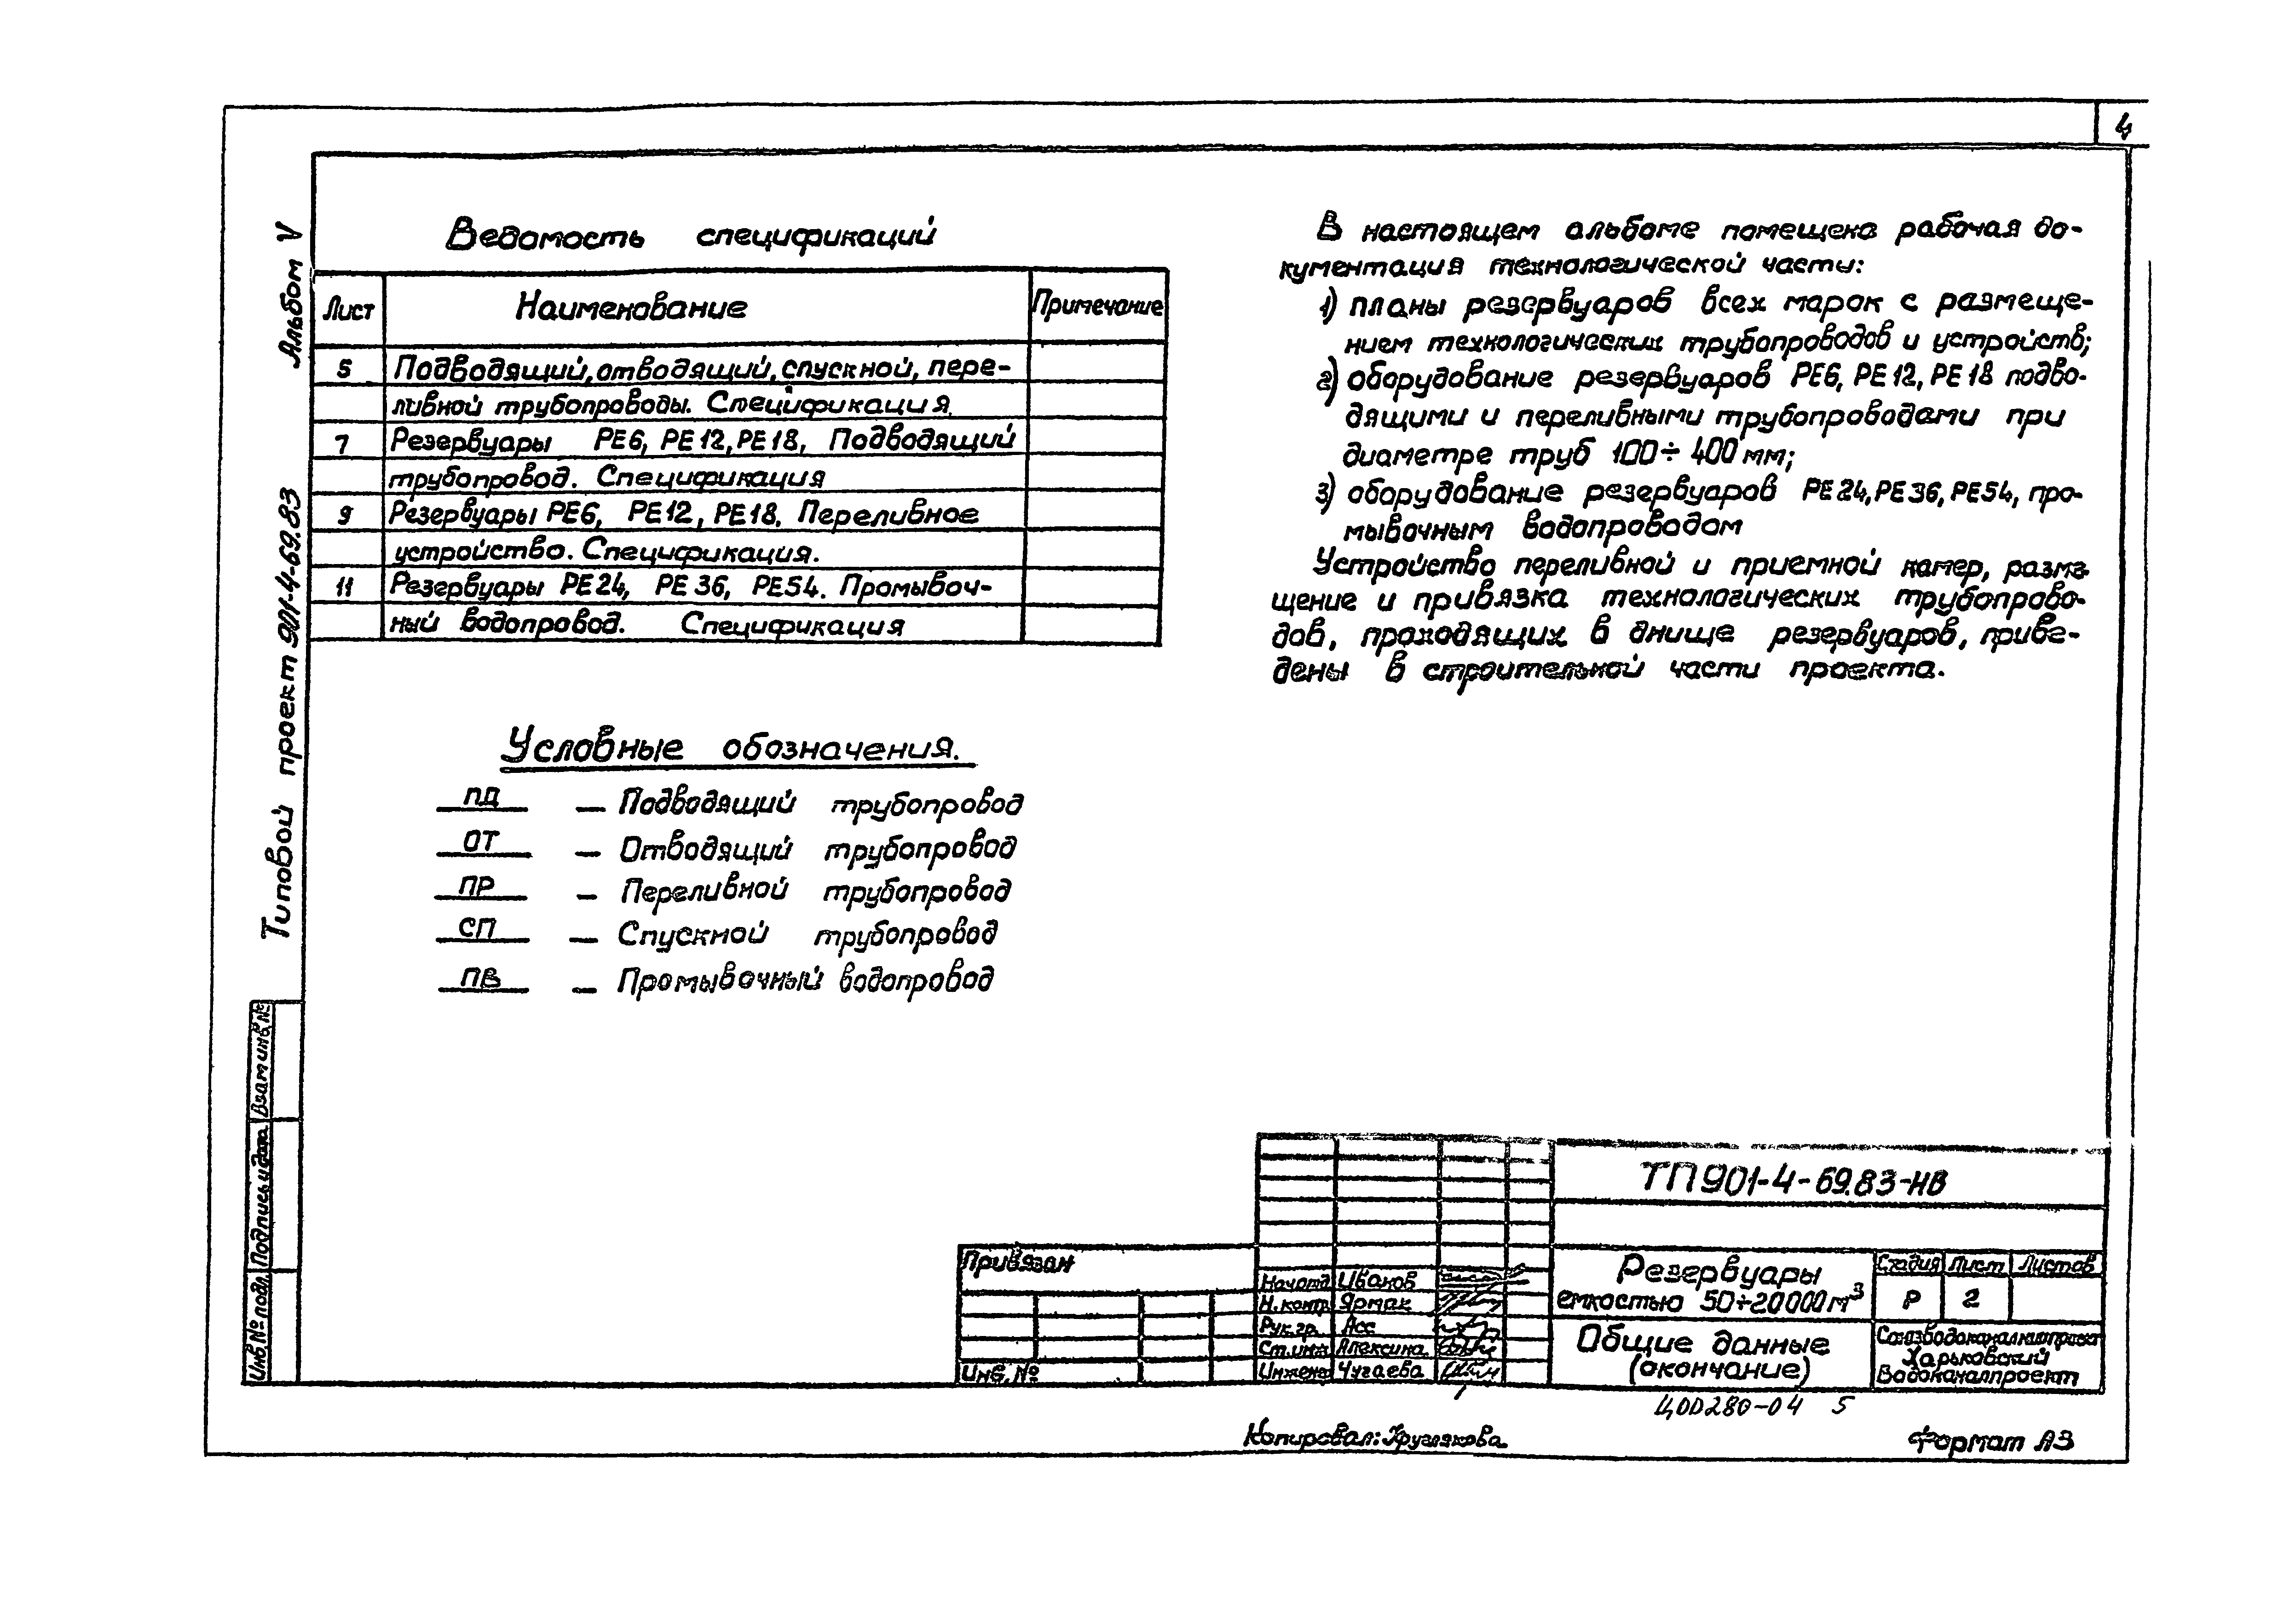 4
Альбом V
Типовой проект 901-4-69.83
Ведомость спецификаций
Лист Наименование Примечание
5 Подводящий, отводящий, спускной, пере-
ливной трубопроводы. Спецификация.
7 Резервуары РЕ6, РЕ12, РЕ18, Подводящий
трубопровод. Спецификация
9 Резервуары РЕ6, РЕ12, РЕ18. Переливное
устройство. Спецификация.
11 Резервуары РЕ24, РЕ36, РЕ54. Промывоч-
ный водопровод. Спецификация
Условные обозначения.
ПД – Подводящий трубопровод
ОТ – Отводящий трубопровод
ПР – Переливной трубопровод
СП – Спускной трубопровод
ПВ – Промывочный водопровод
В настоящем альбоме помещена рабочая до-
кументация технологической части:
1) планы резервуаров всех марок с размеще-
нием технологических трубопроводов и устройств;
2) оборудование резервуаров РЕ6, РЕ12, РЕ18 подво-
дящими и переливными трубопроводами при
диаметре труб 100÷400 мм;
3) оборудование резервуаров РЕ24, РЕ36, РЕ54, про-
мывочным водопроводом
Устройство переливной и приемной камер, разме-
щение и привязка технологических трубопрово-
дов, проходящих в днище резервуаров, приве-
дены в строительной части проекта.
Взам инв. №
Подпись и дата
Инв. № подл.
Привязан
Инв. №
Нач отд Иванов
Н. контр. Ярмак
Рук. гр. Асс
Ст. инж Алексина
Инжене Чугаева
ТП 901-4-69.83-НВ
Резервуары
емкостью 50÷20000 м³
Стадия Лист Листов
Р 2
Общие данные
(окончание)
Союзводоканалниипроект
Харьковский
Водоканалпроект
Ц00280-04 5
Копировал: Круглякова
Формат А3